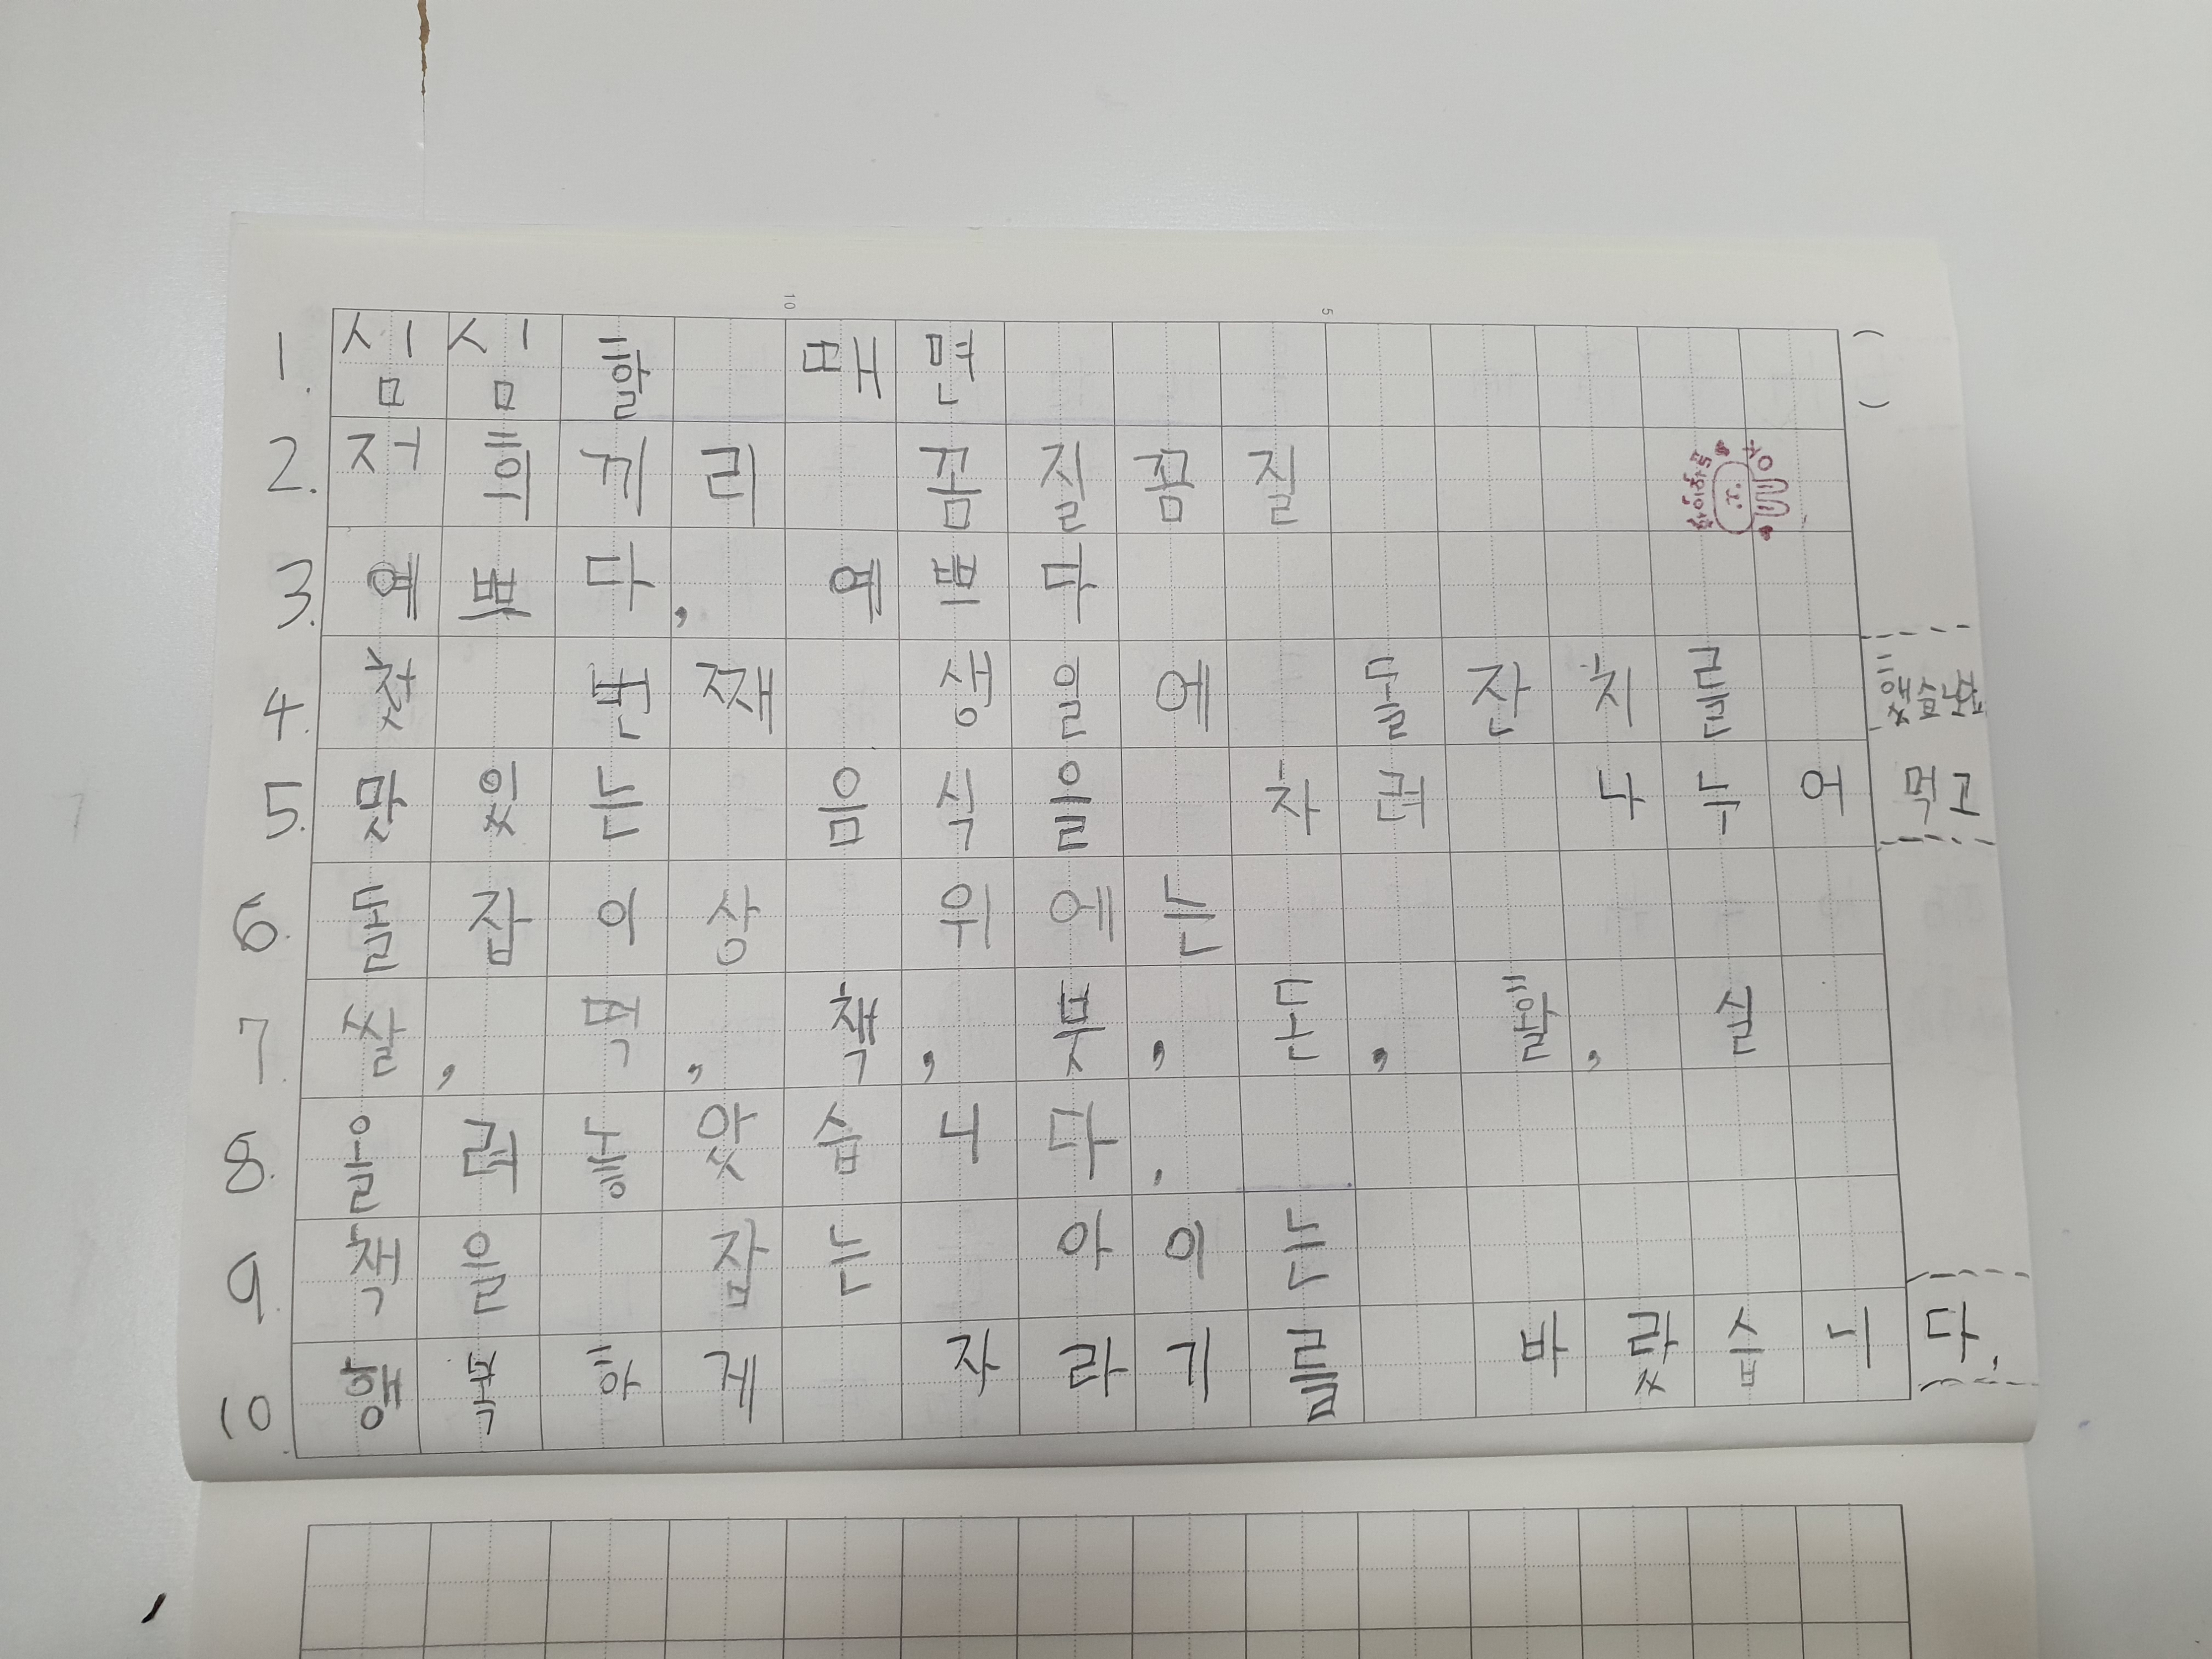 1. 심심할 때면
2. 저희끼리 꼼질꼼질
3. 예쁘다, 예쁘다
4. 첫 번째 생일에 돌잔치를 했습니다
5. 맛있는 음식을 차려 나누어 먹고
6. 돌잡이상 위에는
7. 쌀, 떡, 책, 붓, 돈, 활, 실
8. 올려놓았습니다.
9. 책을 잡는 아이는
10. 행복하게 자라기를 바랐습니다.
10
5